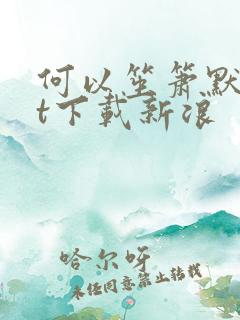 何以笙箫默
t下载新浪
哈尔呀
未经同意禁止转载